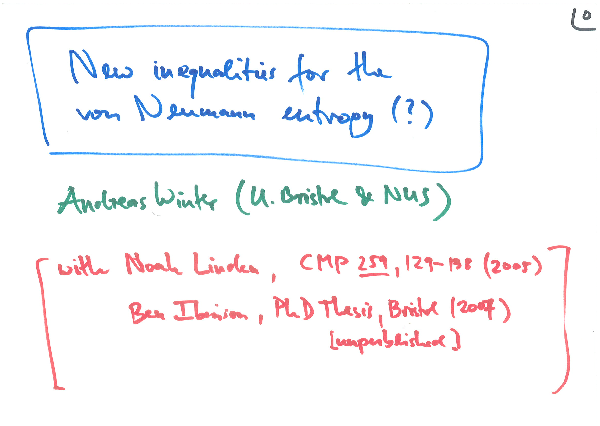 0
New inequalities for the
von Neumann entropy (?)
Andreas Winter (U. Bristol & NUS)
with Noah Linden, CMP 259, 129-138 (2005)
Ben Ibinson, PhD Thesis, Bristol (2007)
[unpublished]